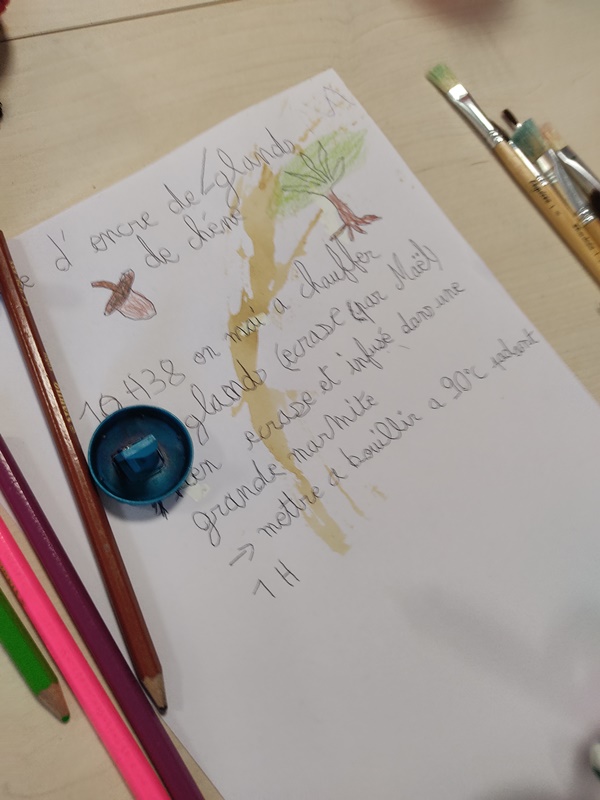 d' encre de glands
de chêne
10H38 on mai a chauffer
glands (ecrase (par Maël)
ien ecrase et infusé dans une
grande marmite
→ mettre a bouillir a 90°c
1H